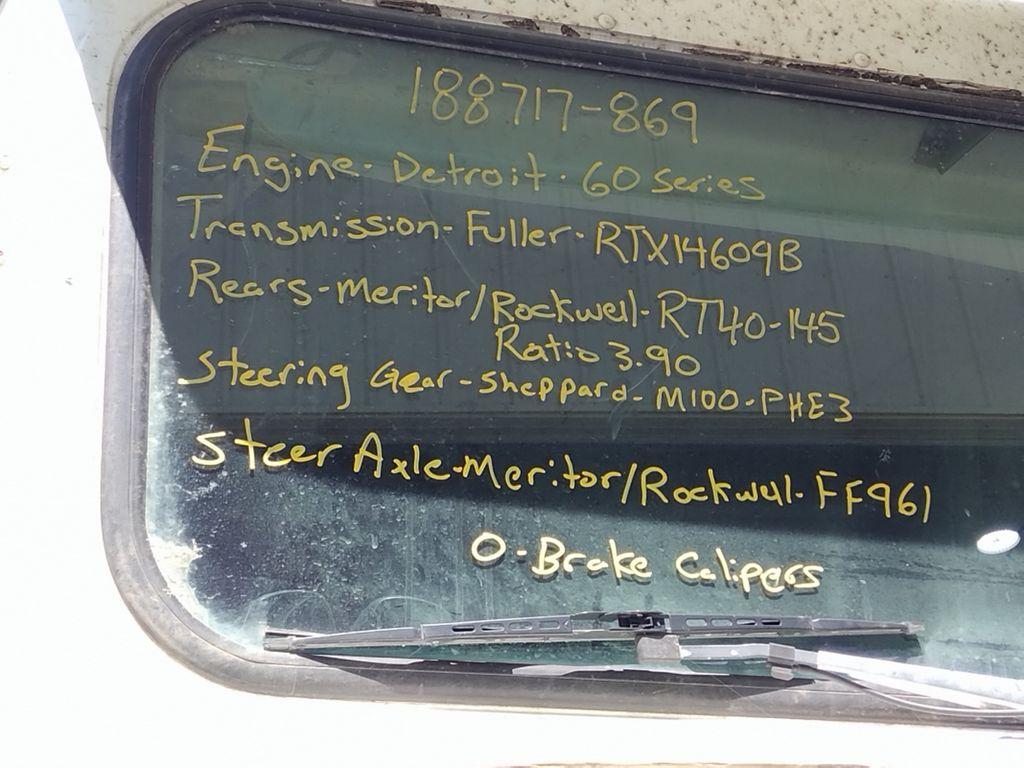 188717-869
Engine- Detroit - 60 series
Transmission- Fuller- RTX14609B
Rears-meritor/Rockwell- RT40-145
Ratio 3.90
Steering Gear-Sheppard-M100-PHE3
Steer Axle-Meritor/Rockwell-FF961
0-Brake Calipers